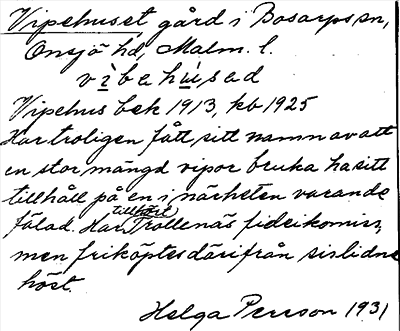 Vipehuset gård i Bosarps sn,
Onsjö hd, Malm. l.
vìbahúsad
Vipehus bek 1913, kb 1925
Har troligen fått sitt namn av att
en stor mängd vipor bruka ha sitt
tillhåll på en i närheten varande
fälad. Har tillhört Trollenäs fideikomiss,
men friköptes därifrån sislidne
höst.
Helga Persson 1931